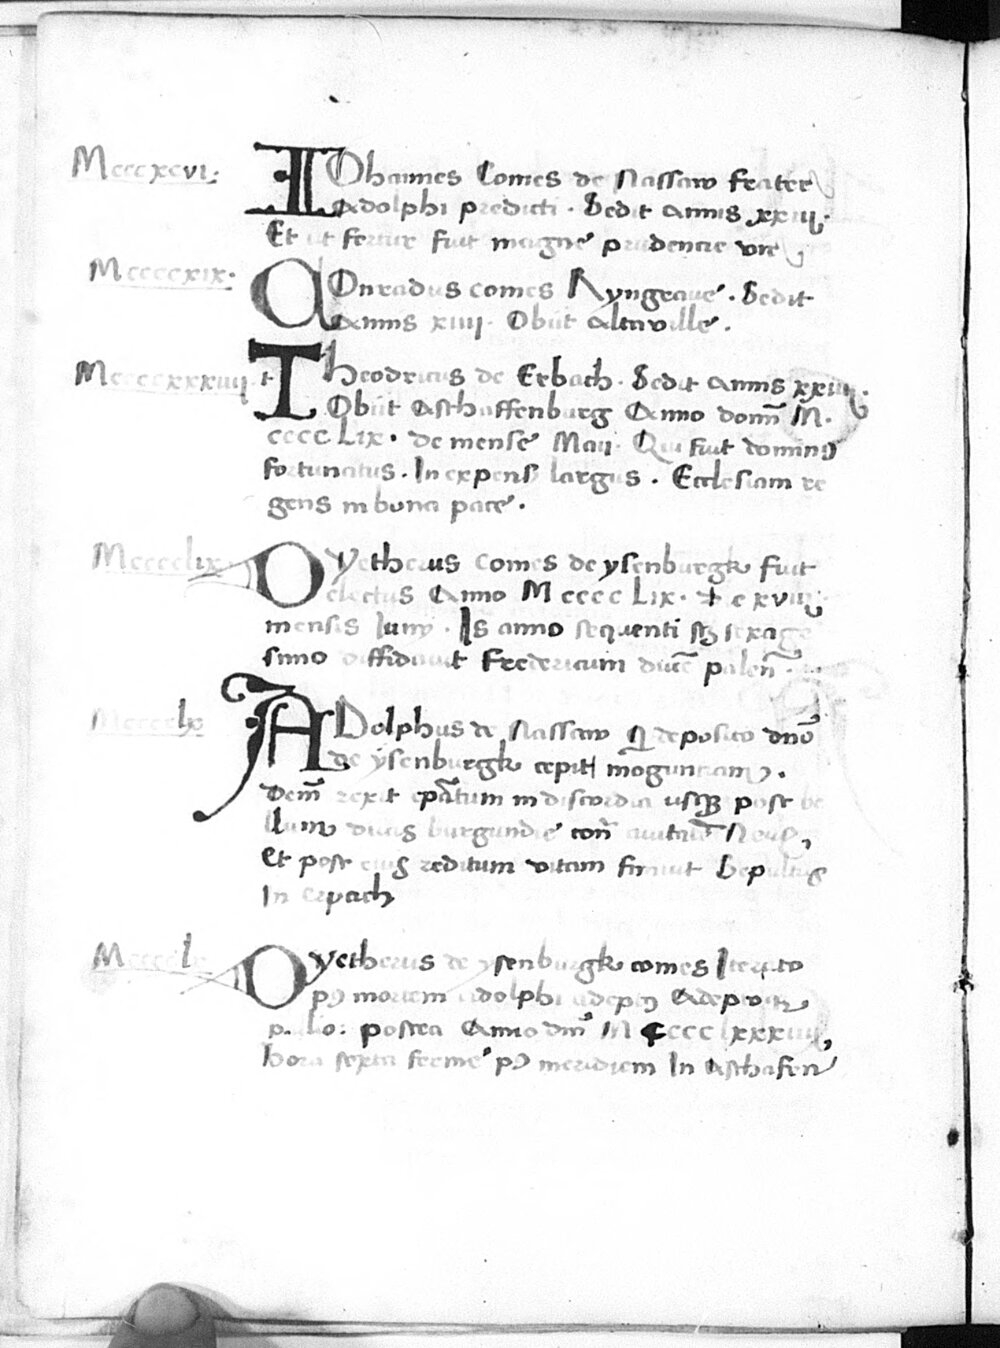 Mcccxcvi.
IOhannes Comes de Nassaw frater
Adolphi predicti. Sedit Annis xxiij.
Et ut fertur fuit magne prudencie vir
Mccccxix.
COnradus comes Ryngraue. Sedit
Annis xiiij. Obiit Altaville.
Mccccxxxiiij
Theodricus de Erbach. Sedit Annis xxiiij.
Obiit Aschaffenburg Anno domī M.
cccc Lix. de mense Maij. Qui fuit dominꝰ
fortunatus. In expensꝭ largus. Ecclesiam re
gens in bona pace.
Mcccclix
DYetherus Comes de ysenburgk fuit
electus Anno M cccc Lix.
mensis Iunij. Is anno sequenti sꝫ sexage
simo diffidauit Fredericum ducē palen̄.
Mcccclx
ADolphus de Nassaw deposito dn̄o
de ysenburgk cepit mōguntiam.
Dem̄ rexit ep̄atum in discordia usqꝫ post be
llum ducis burgundie con̄ ciuitatē
Et post eiꝰ reditum vitam finiuit Sepultus
In erpach
DYetherus de ysenburgk comes Iterato
pꝰ mortem adolphi
postea Anno dm̄ M ccccLxxxiiij,
hora sexta ferme pꝰ meridiem In Aschafen